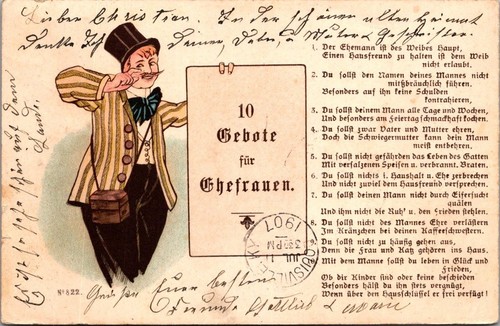 Lieber Christian. In der schönen alten Heimat
Denke Ich Deiner, Vater, u Mutter u Geschwister.
10
Gebote
für
Ehefrauen.
1. Der Ehemann ist des Weibes Haupt,
Einen Hausfreund zu halten ist dem Weib
nicht erlaubt.
2. Du sollst den Namen deines Mannes nicht
mißbräuchlich führen,
Besonders auf ihn keine Schulden
kontrahieren,
3. Du sollst deinem Mann alle Tage und Wochen,
Und besonders am Feiertag schmackhaft kochen.
4. Du sollst zwar Vater und Mutter ehren,
Doch die Schwiegermutter kann dein Mann
meist entbehren.
5. Du sollst nicht gefährden das Leben des Gatten
Mit versalzenen Speisen u. verbrannt. Braten.
6. Du sollst nichts i. Haushalt u. Ehe zerbrechen
Und nicht zuviel dem Hausfreund versprechen.
7. Du sollst deinen Mann nicht durch Eifersucht
quälen
Und ihm nicht die Ruh' u. den Frieden stehlen.
8. Du sollst nicht des Mannes Ehre verlästern
Im Kränzchen bei deinen Kaffeeschwestern.
9. Du sollst nicht zu häufig gehen aus,
Denn die Frau und Katz gehören ins Haus.
10. Mit dem Manne sollst du leben in Glück und
Frieden,
Ob dir Kinder sind oder keine beschieden
Besonders hälst du ihn stets vergnügt,
Wenn über den Hausschlüssel er frei verfügt!
LOUISVILLE, KY.
JUL
330PM
1907
No 822.
Euer besten
Freunde Gottlieb